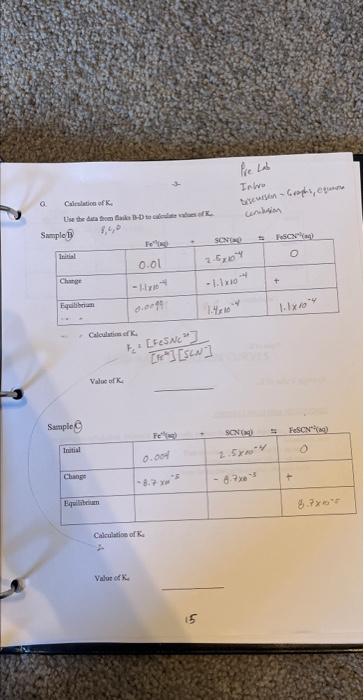 Pre Lab
-3-
Intro
Discussion - Graphs, equation
conclusion
G. Calculation of Kc
Use the data from flasks B-D to calculate values of Kc
B, C, D
Sample B
Fe+3(aq) + SCN-(aq) ⇆ FeSCN+2(aq)
Initial 0.01 2.5x10-4 0
Change -1.1x10-4 -1.1x10-4 +
Equilibrium 0.0099 1.4x10-4 1.1x10-4
Calculation of Kc
[FeSNC2+]
[Fe3+][SCN-]
Value of Kc
Sample C
Fe+3(aq) + SCN-(aq) ⇆ FeSCN+2(aq)
Initial 0.004 2.5x10-4 0
Change -8.7x10-5 -8.7x10-5 +
Equilibrium 8.7x10-5
Calculation of Kc
Value of Kc
15